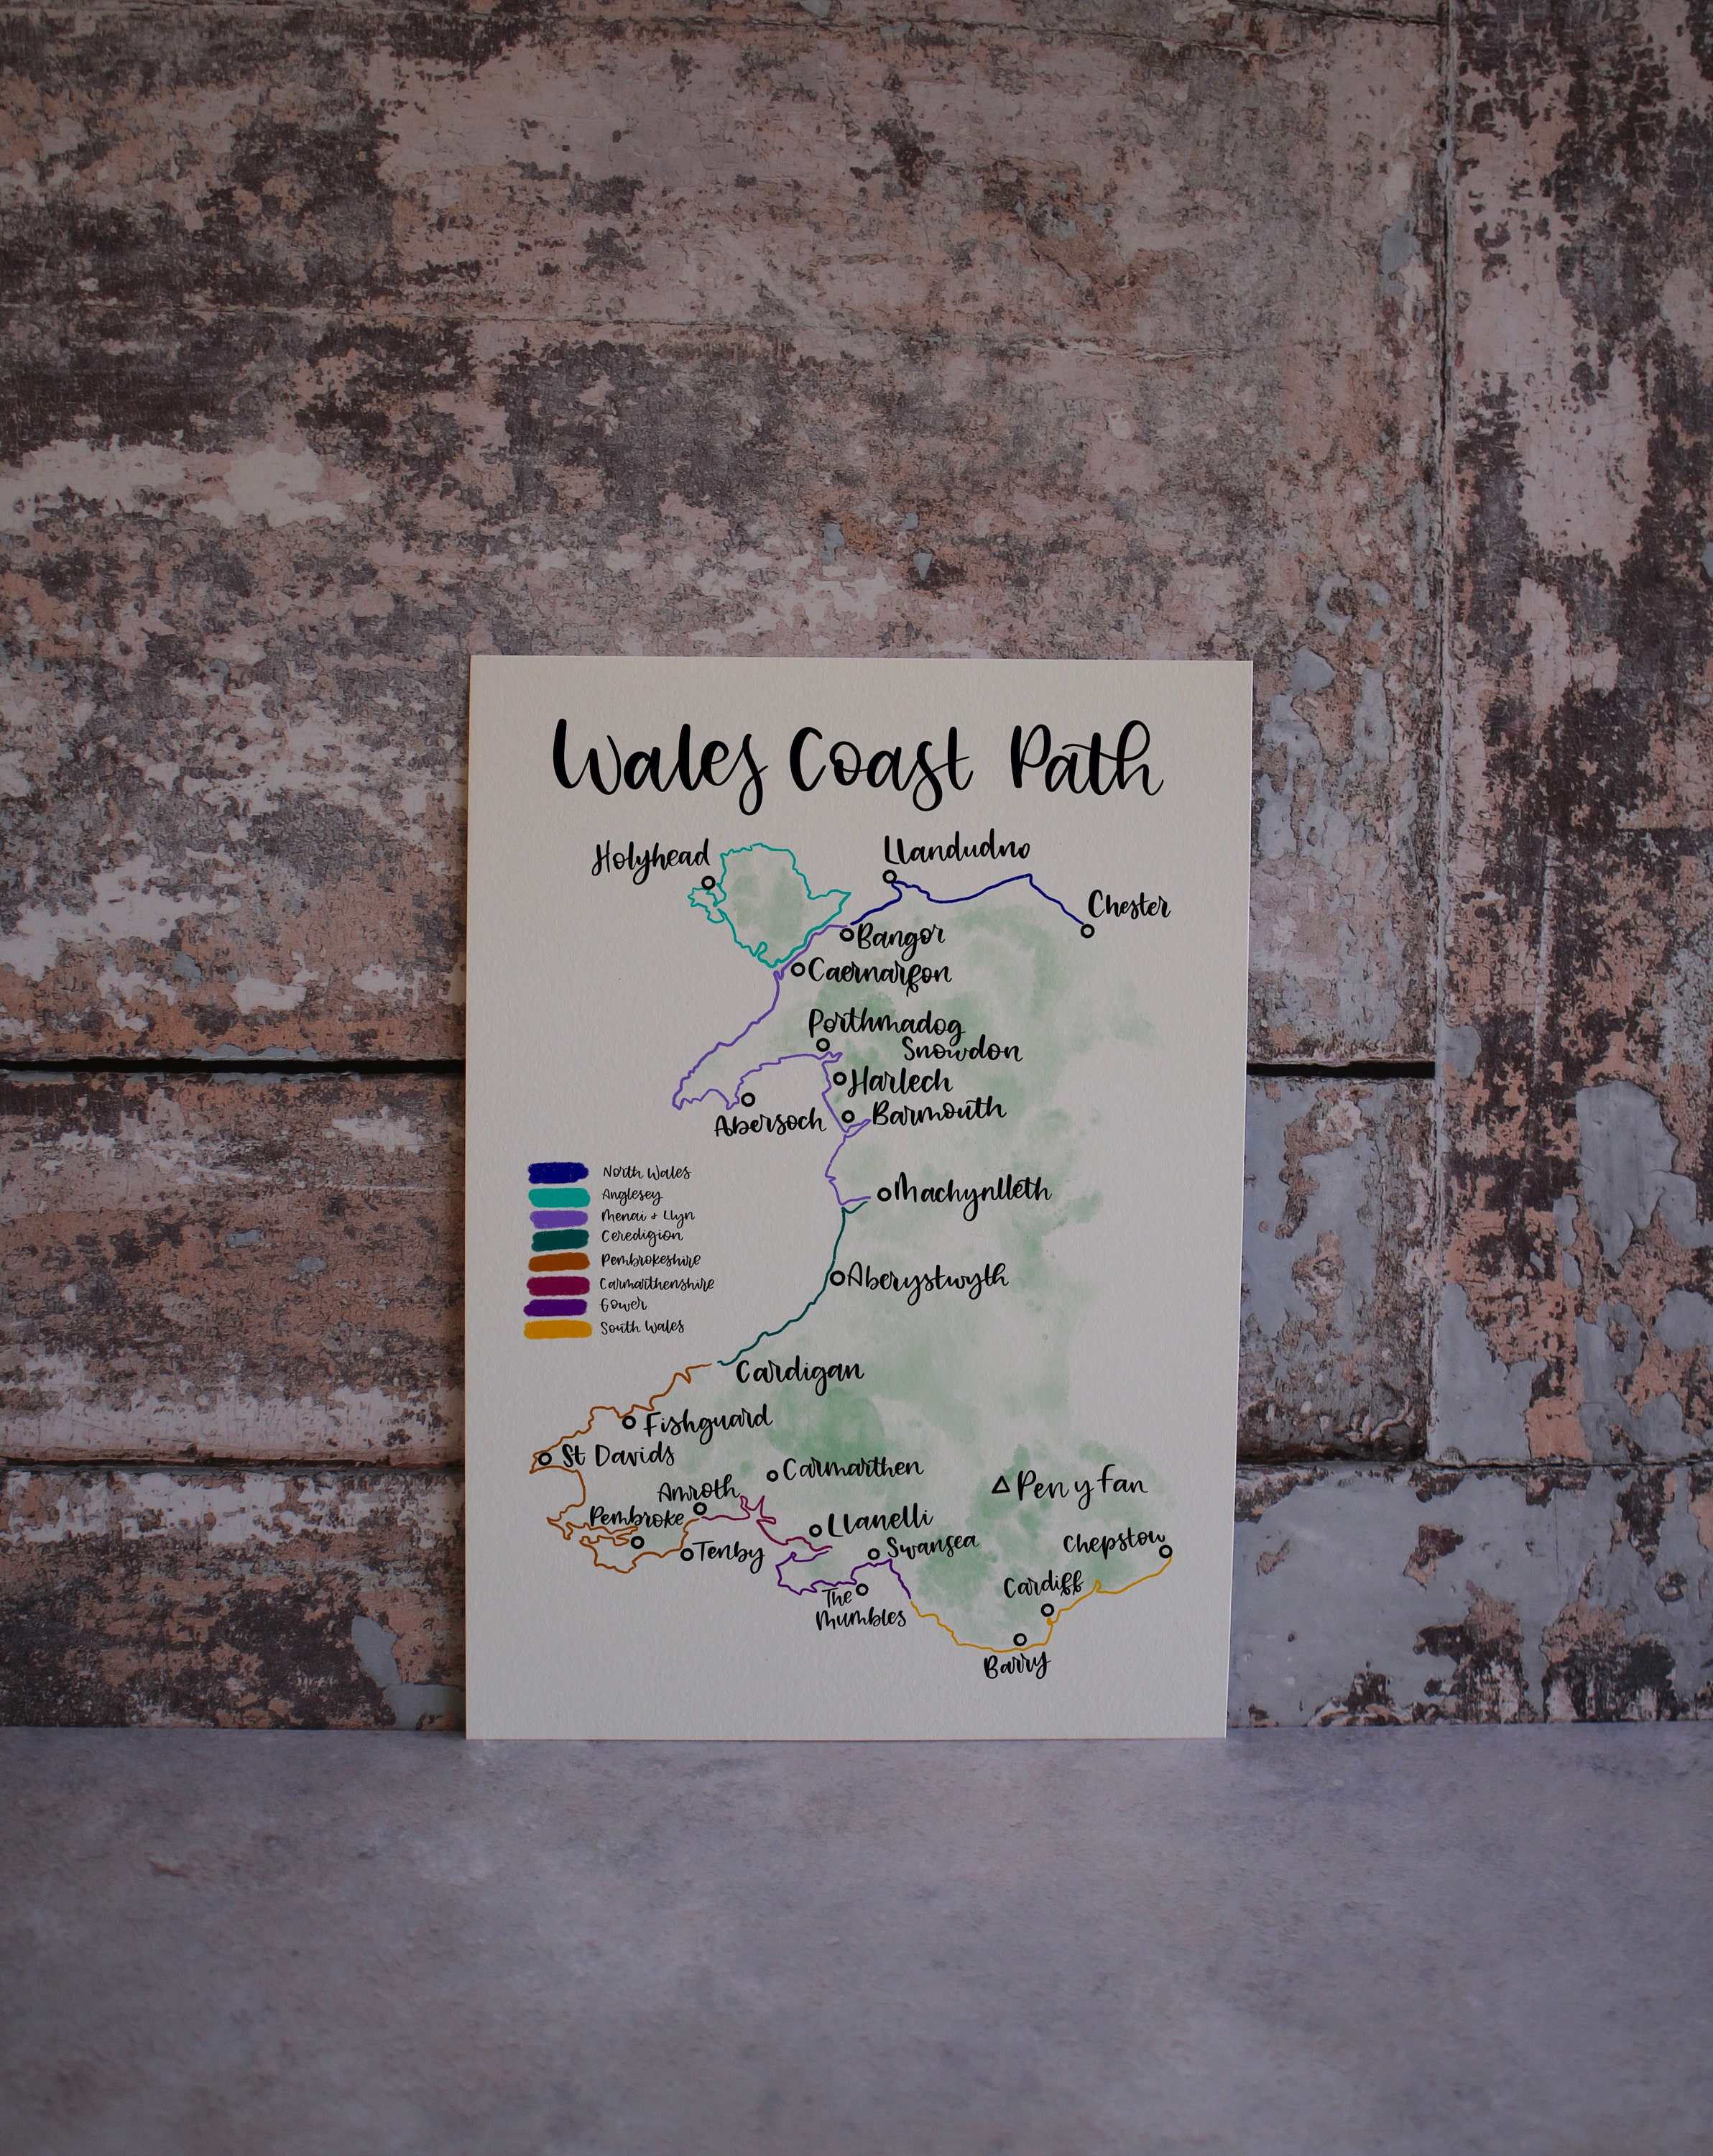 Wales Coast Path
Holyhead
Llandudno
Chester
Bangor
Caernarfon
Porthmadog
Snowdon
Harlech
Abersoch
Barmouth
Machynlleth
North Wales
Anglesey
Menai + Llyn
Ceredigion
Pembrokeshire
Carmarthenshire
Gower
South Wales
Aberystwyth
Cardigan
Fishguard
St Davids
Carmarthen
Amroth
Pen y Fan
Pembroke
Llanelli
Tenby
Swansea
Chepstow
The
Mumbles
Cardiff
Barry